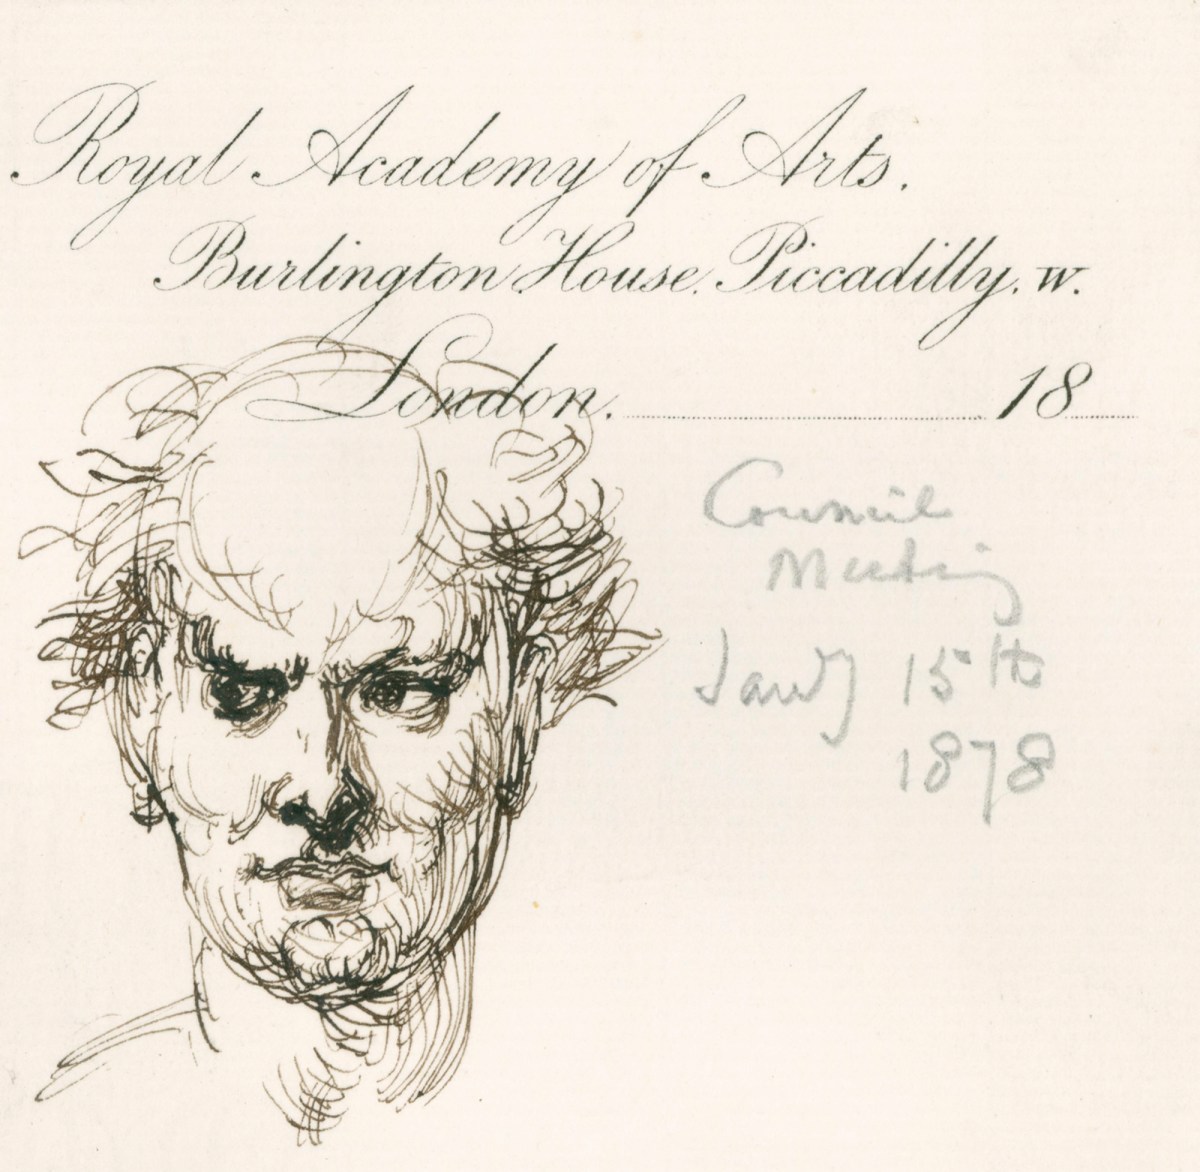 Royal Academy of Arts.
Burlington House. Piccadilly. W.
London. 18
Council
Meeting
Jany 15th
1878